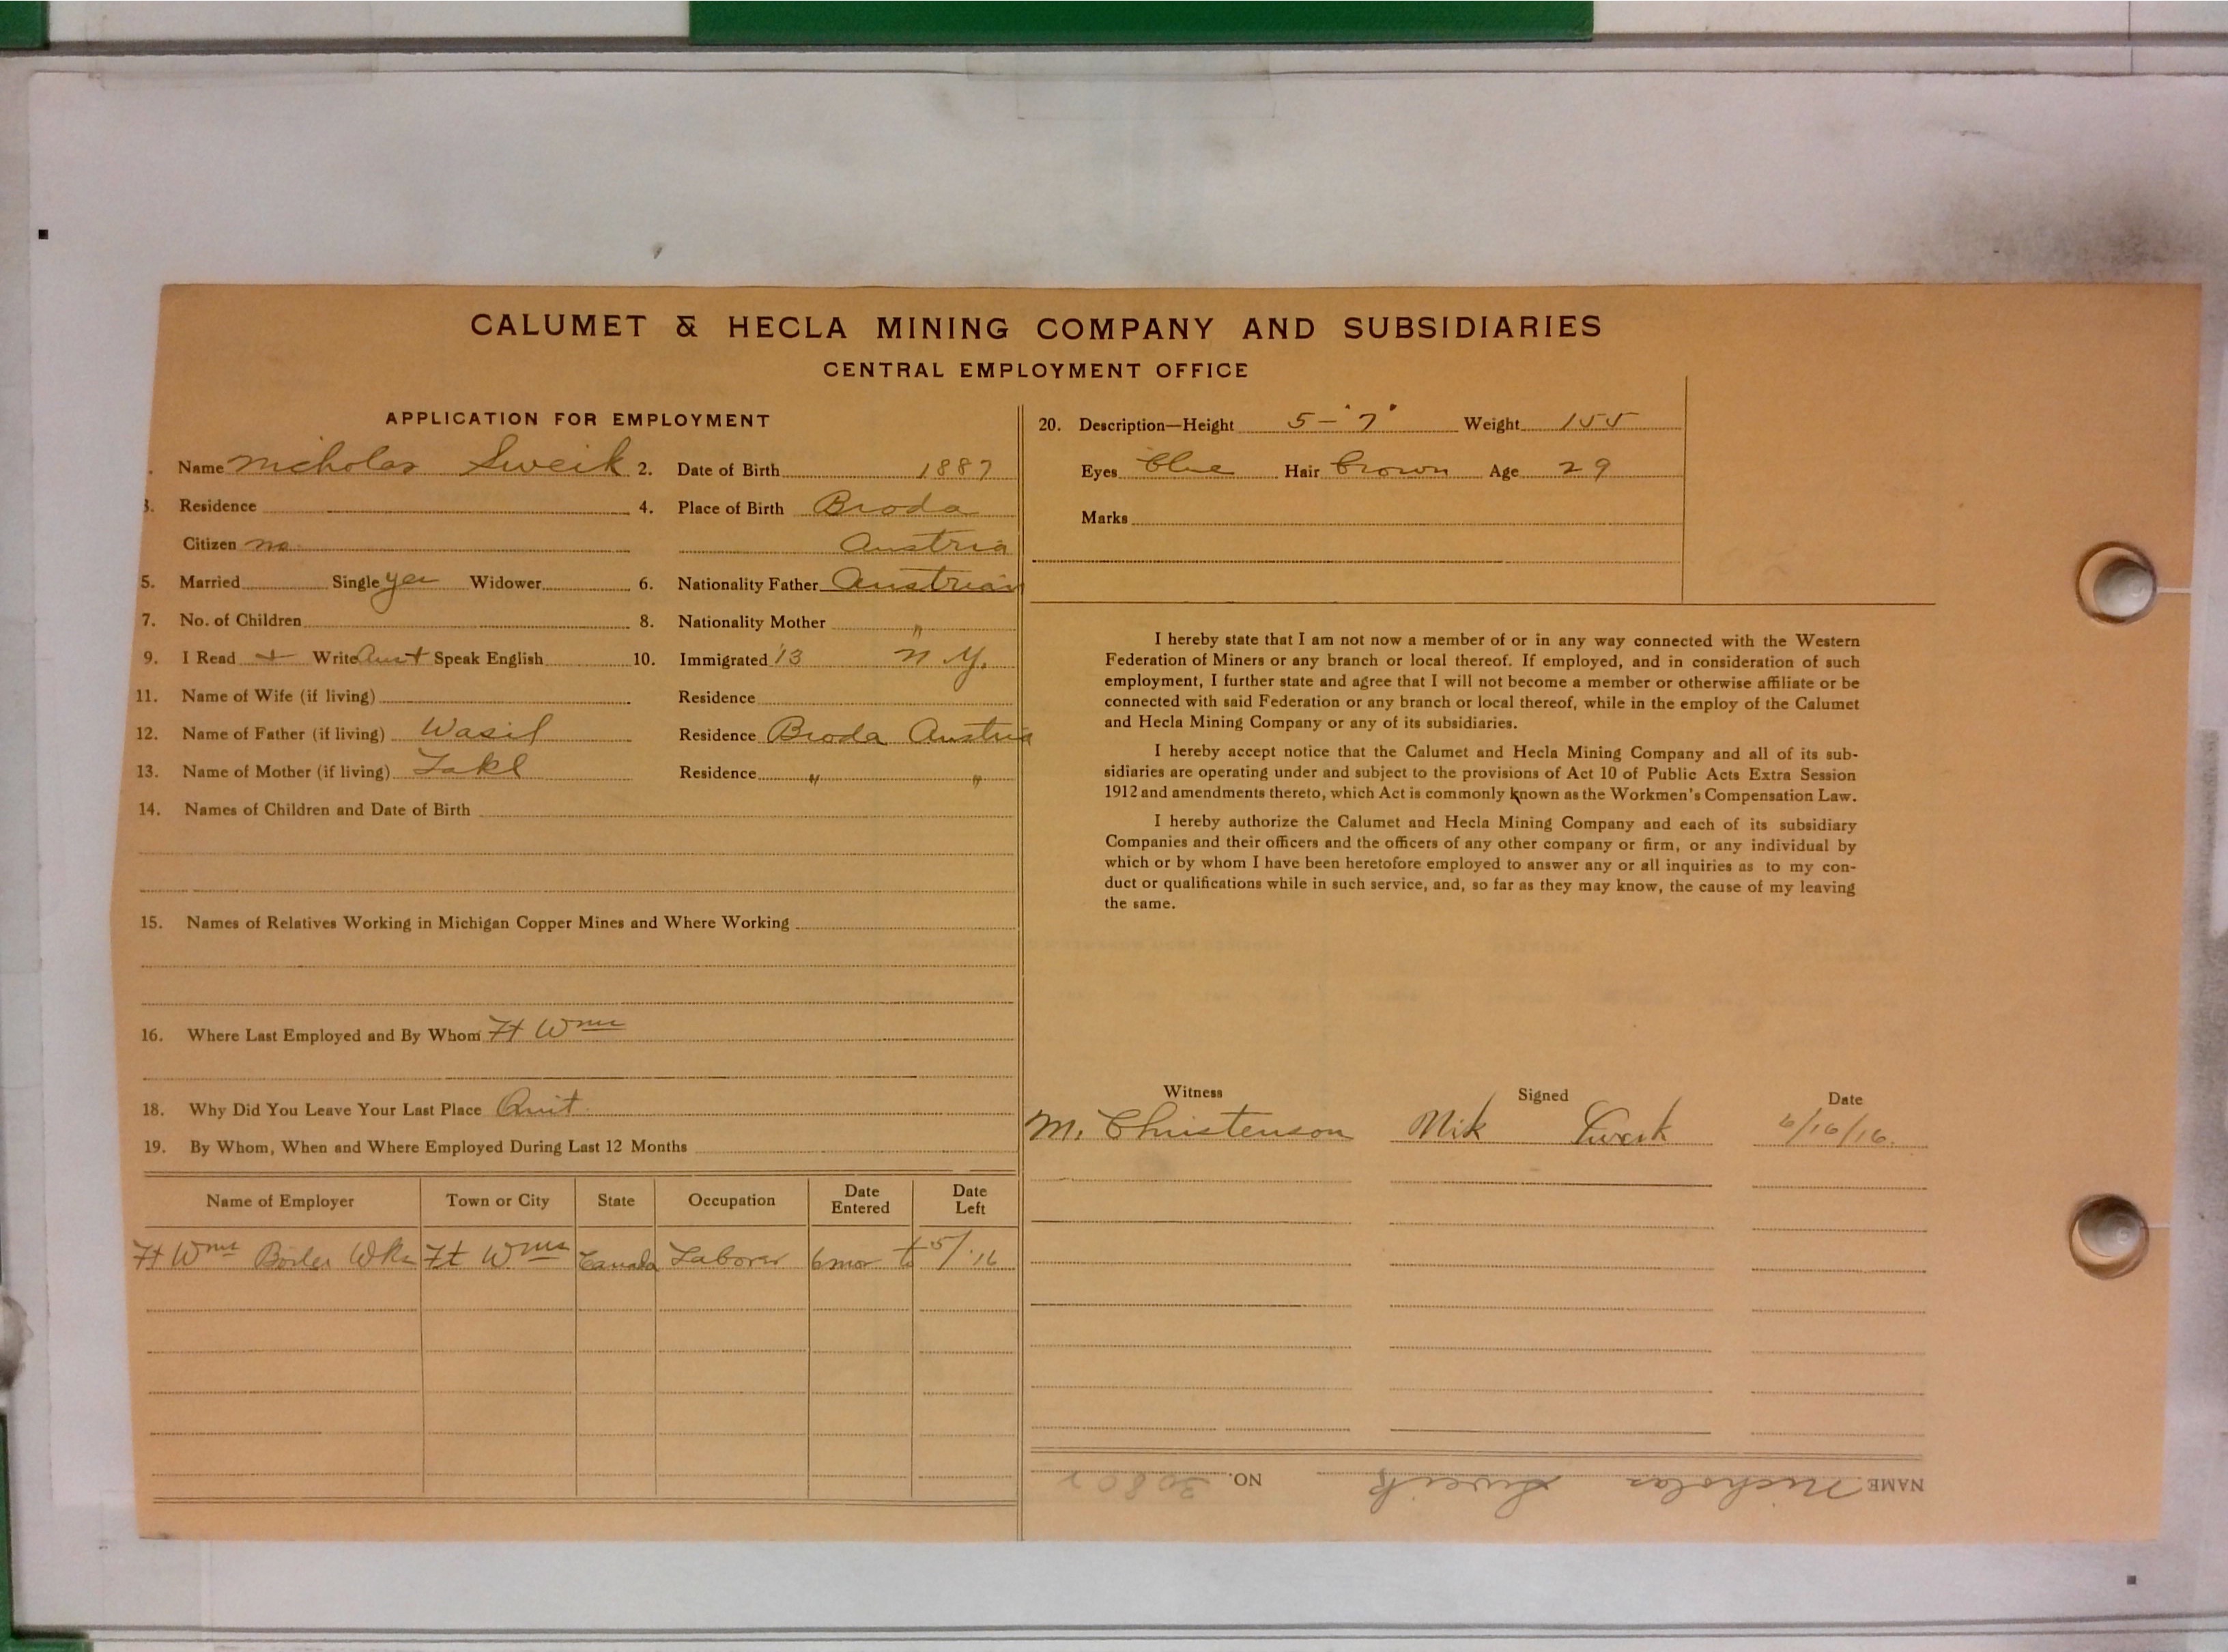 CALUMET & HECLA MINING COMPANY AND SUBSIDIARIES
CENTRAL EMPLOYMENT OFFICE
APPLICATION FOR EMPLOYMENT
. Name Nicholas Sweik 2. Date of Birth 1887
3. Residence 4. Place of Birth Broda
Citizen no Austria
5. Married Single yes Widower 6. Nationality Father Austrian
7. No. of Children 8. Nationality Mother "
9. I Read + Write Aust Speak English 10. Immigrated '13 N Y.
11. Name of Wife (if living) Residence
12. Name of Father (if living) Wasil Residence Broda Austria
13. Name of Mother (if living) Residence " "
14. Names of Children and Date of Birth
15. Names of Relatives Working in Michigan Copper Mines and Where Working
16. Where Last Employed and By Whom Ft Wms
18. Why Did You Leave Your Last Place Quit
19. By Whom, When and Where Employed During Last 12 Months
Name of Employer Town or City State Occupation Date Entered Date Left
Ft Wms Boiler Wks Ft Wms Canada Laborer 6 mos to 5/'16
20. Description—Height 5-'7" Weight 155
Eyes blue Hair brown Age 29
Marks
I hereby state that I am not now a member of or in any way connected with the Western
Federation of Miners or any branch or local thereof. If employed, and in consideration of such
employment, I further state and agree that I will not become a member or otherwise affiliate or be
connected with said Federation or any branch or local thereof, while in the employ of the Calumet
and Hecla Mining Company or any of its subsidiaries.
I hereby accept notice that the Calumet and Hecla Mining Company and all of its sub-
sidiaries are operating under and subject to the provisions of Act 10 of Public Acts Extra Session
1912 and amendments thereto, which Act is commonly known as the Workmen's Compensation Law.
I hereby authorize the Calumet and Hecla Mining Company and each of its subsidiary
Companies and their officers and the officers of any other company or firm, or any individual by
which or by whom I have been heretofore employed to answer any or all inquiries as to my con-
duct or qualifications while in such service, and, so far as they may know, the cause of my leaving
the same.
Witness Signed Date
M. Christenson Nik Sweik 6/16/16.
NAME Nicholas Sweik NO.